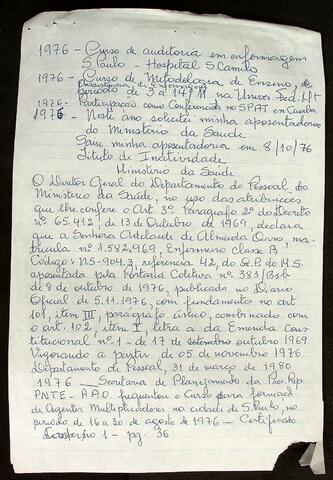 1976 - Curso de auditoria em enfermagem
S Paulo - Hospital S. Camilo
1976 - Curso de Metodologia de Ensino, e
Assistencia de Enfermagem
período de 3 a 14/11 na Univer. Fed. Mt
1976 - Participação como Conferencista no SPAT em Cuiabá
1976 - Neste ano solicitei minha aposentadoria
do Ministério da Saude
Saiu minha aposentadoria em 8/10/76
Titulo de Inatividade
Ministério da Saúde
O Diretor Geral do Departamento de Pessoal do
Ministério da Saúde, no uso das atribuições
que lhe confere o Art 3º Paragrafo 2º do Decreto
nº 65.412, de 13 de Outubro de 1969, declara
que a Senhora Adelaide de Almeida Orro, ma-
tricula nº 1.582.969, Enfermeiro Classe B
Código: NS-904.3, referência 42, do Q.P. do M.S.
aposentada pela Portaria Coletiva nº 383/Bsb
de 8 de outubro de 1976, publicada no Diario
Oficial de 5.11.1976, com fundamento no art
101, item III, paragrafo único, combinado com
o art. 102, item I, letra a da Emenda Cons-
titucional nº 1 - de 17 de outubro 1969
Vigorando a partir de 05 de novembro 1976.
Departamento de Pessoal, 31 de março de 1980
1976 - Secretaria de Planejamento da Pres. Rep.
PNTE - AAO. frequentou o Curso para formação
de Agentes Multiplicadores na cidade de S. Paulo, no
período de 16 a 30 de agosto de 1976 - Certificado
Caderno 1 - pg. 36